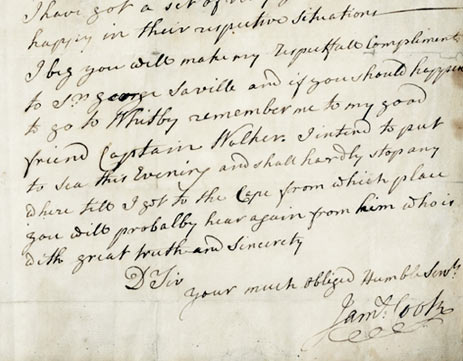 I have got a set of
happy in their respective situations
I beg you will make my respectfull Compliments
to Sr. George Saville and if you should happen
to go to Whitby remember me to my good
friend Captain Walker. I intend to put
to sea this Evening and shall hardly stop any
where till I get to the Cape from which place
you will probalby hear again from him who is
with great truth and sincerety
Dr Sir
your much obliged Humble Servt.
Jams. Cook